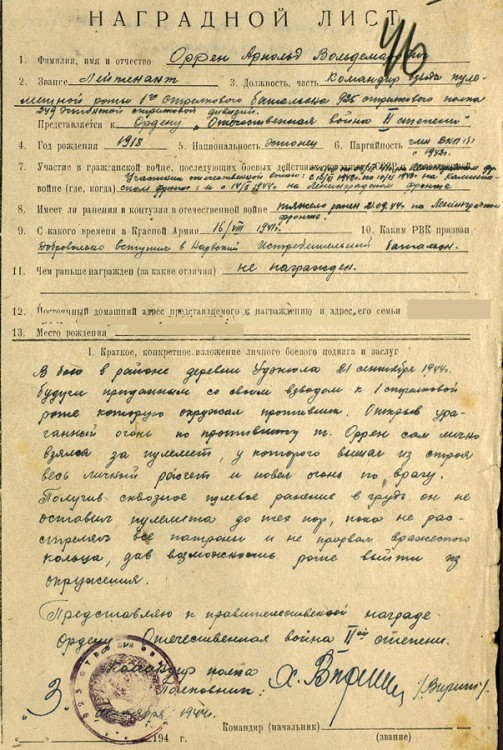 НАГРАДНОЙ ЛИСТ
46
1. Фамилия, имя и отчество Оррен Арнольд
2. Звание Лейтенант 3. Должность, часть Командир взвода пуле-
метной роты 1го стрелкового батальона 925 стрелкового полка
249 Эстонской стрелковой дивизии.
Представляется к Ордену „Отечественная война II степени"
4. Год рождения 1918 5. Национальность эстонец 6. Партийность член ВКП(б)
7. Участие в гражданской войне, последующих боевых действиях
войне (где, когда) ском фронте и с 14/II 1944 г. на Ленинградском фронте
8. Имеет ли ранения и контузии в отечественной войне тяжело ранен 21.09.44г. на Ленинградском
фронте.
9. С какого времени в Красной Армии 16/VII 1941г. 10. Каким РВК призван
Добровольно вступил в Нарвский Истребительный батальон.
11. Чем ранее награжден (за какие отличия) не награжден.
12. Постоянный домашний адрес представляемого к награждению и адрес его семьи
13. Место рождения
I. Краткое, конкретное изложение личного боевого подвига и заслуг
В бою в районе деревни 21 сентября 1944г.
будучи приданным со своим взводом к 1 стрелковой
роте которую окружал противник. Открыв ура-
ганный огонь по противнику т. Оррен сам лично
взялся за пулемет, у которого вышел из строя
весь личный расчет и повел огонь по врагу.
Получив сквозное пулевое ранение в грудь он не
оставил пулемета до тех пор, пока не рас-
стрелял все патроны и не прорвал вражеского
кольца, дав возможность роте выйти из
окружения.
Представляю к правительственной награде
Ордену Отечественная война IIой степени.
Командир полка
Полковник:
„3" 1944г.
194 г.
Командир (начальник)
(звание)